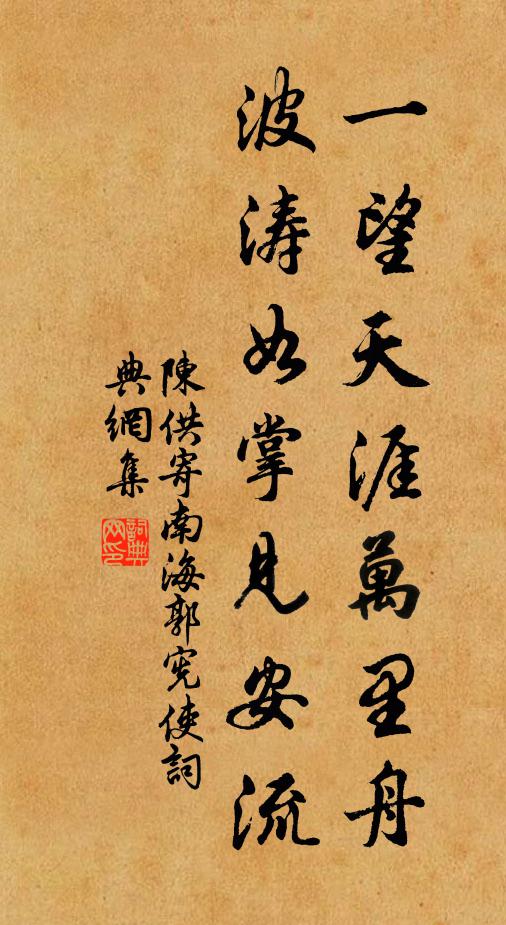 一望天涯萬里舟
波涛如掌見安流
陳供寄南海郭宪使詞
典網集
詞典网印